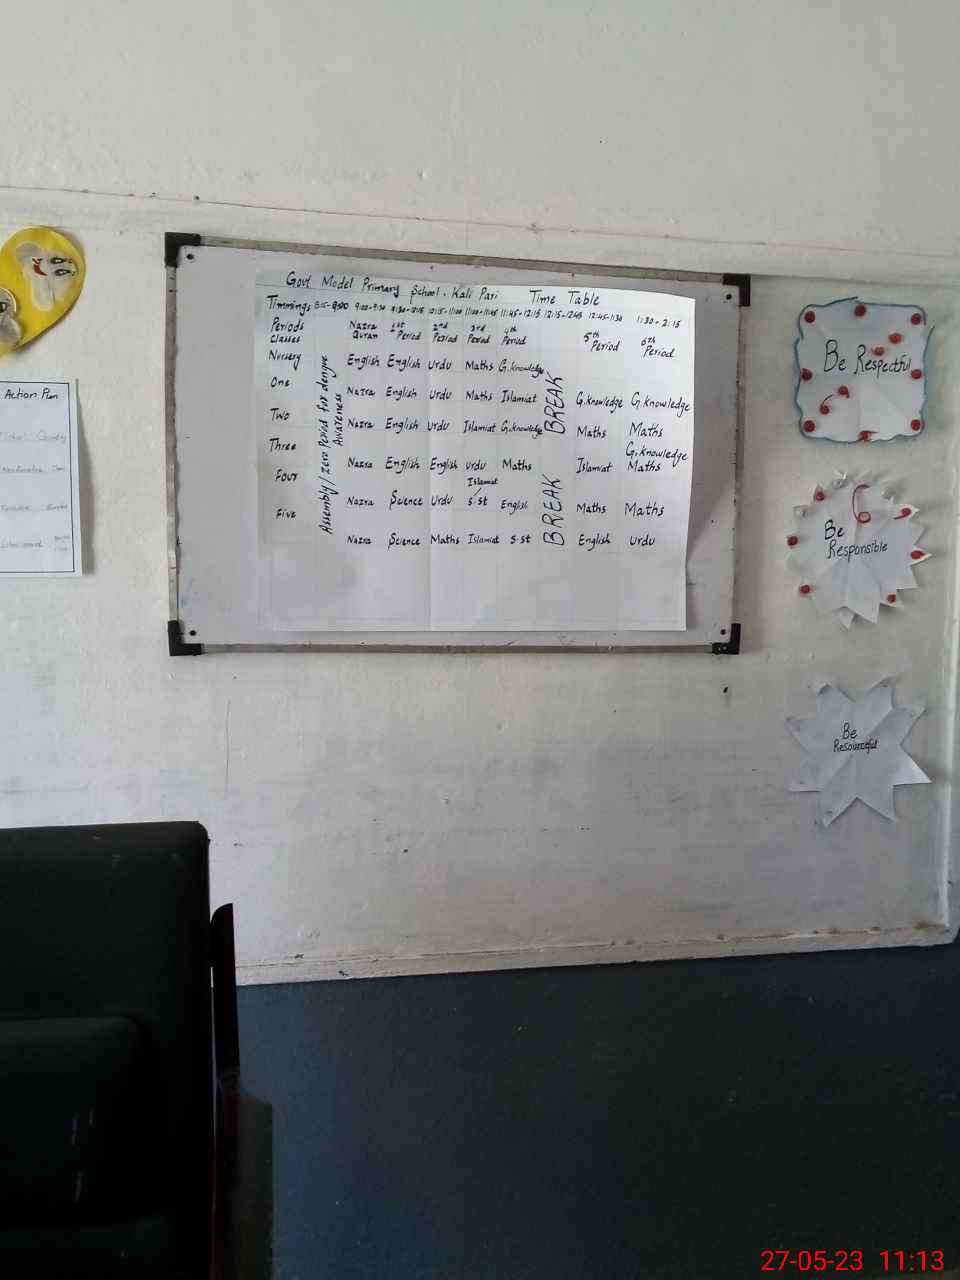 Govt Model Primary School. Kali Pari Time Table
Timmings 8:15-9:00 9:00-9:30 9:30-10:15 10:15-11:00 11:00-11:45 11:45-12:15 12:15-12:45 12:45-1:30 1:30-2:15
Periods Nazra 1st 2nd 3rd 4th 5th 6th
Classes Quran Period Period Period Period Period Period
Assembly/Zero Period for dengue
Awareness
Nursery English English Urdu Maths G.knowledge
BREAK
One Nazra English Urdu Maths Islamiat G.knowledge G.knowledge
Two Nazra English Urdu Islamiat G.knowledge Maths Maths
G.knowledge
Three Nazra English English urdu Maths Islamiat Maths
Islamiat
Four Nazra Science Urdu s.st English Maths Maths
BREAK
Five Nazra Science Maths Islamiat s.st English Urdu
Action Plan
Be Respectful
Be
Responsible
Be
Resourceful
27-05-23 11:13